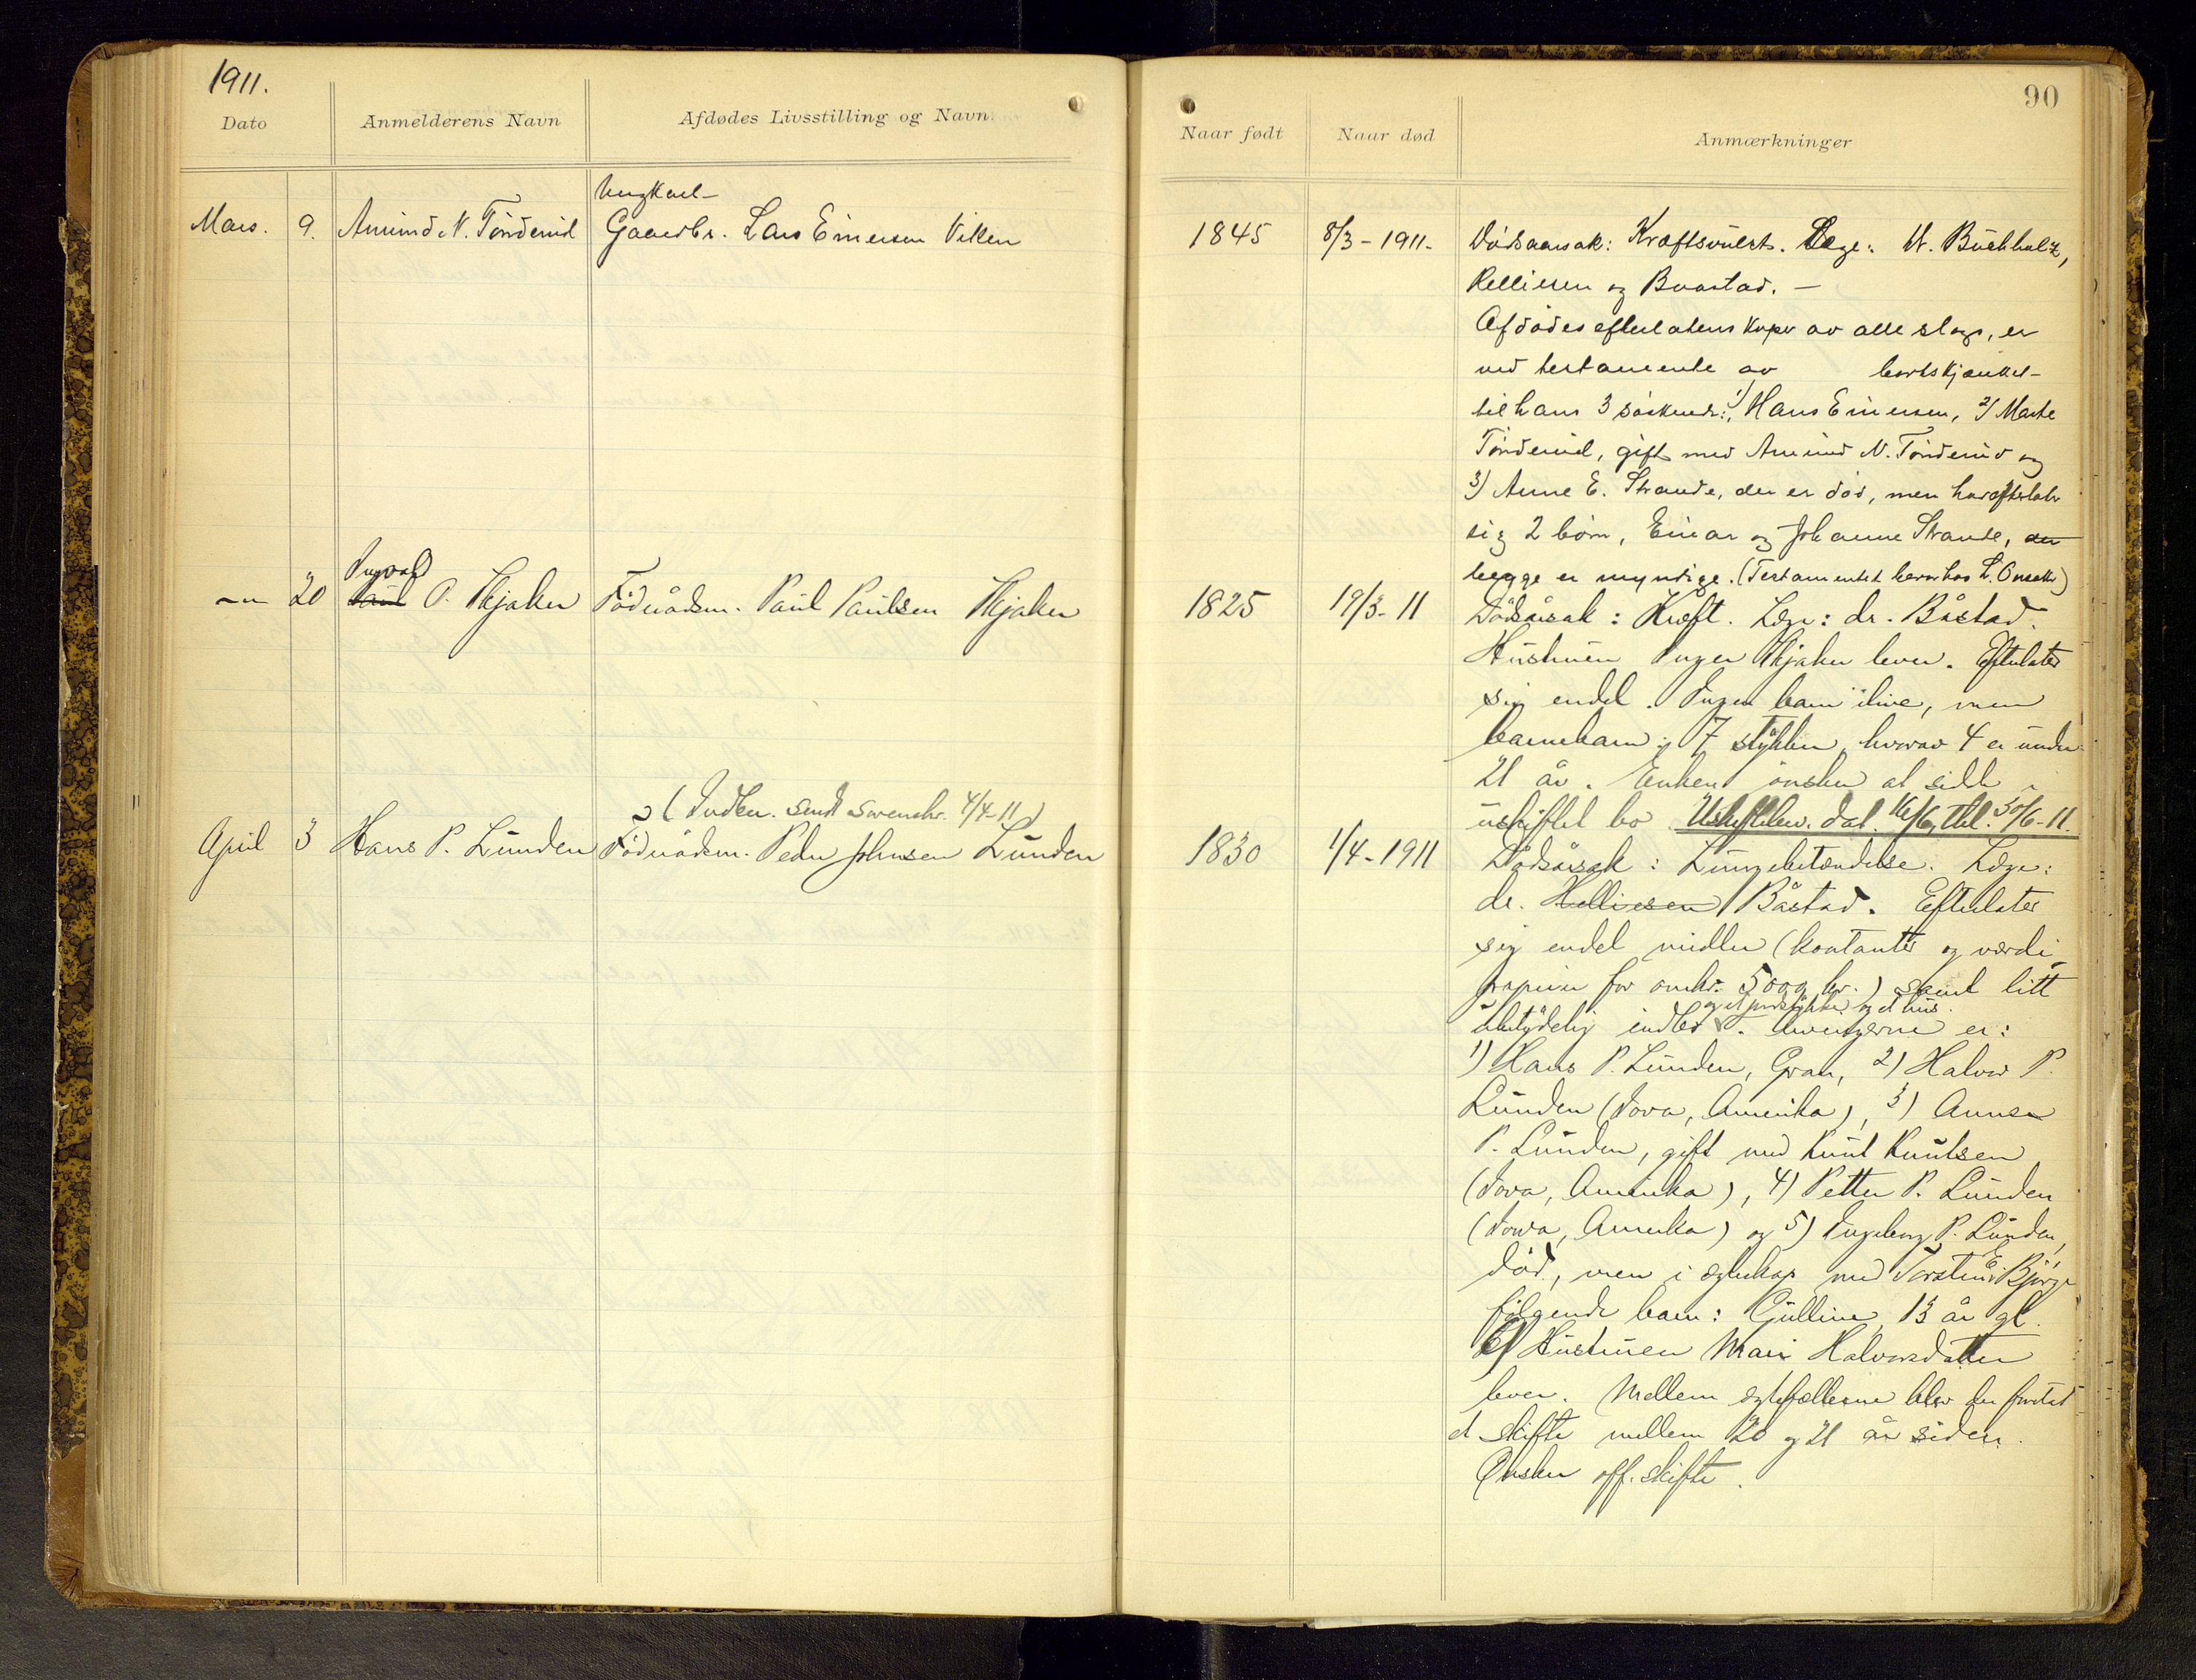 1911.
90
Dato
Anmelderens Navn
Afdødes Livsstilling og Navn
Naar født
Naar død
Anmærkninger
Ungkarl
Mars. 9. Amund N. Tønderud Gaardbr. Lars Einersen Viken 1845 8/3-1911. Dødsaarsak: Kræftsvulst. Læge: W. Buchholz,
og Baastad. –
Afdødes efterlatenskaper av alle slags, er
ved testamente av bortskjænket
til hans 3 søskende: 1) Hans Einersen, 2) Marte
Tønderud, gift med Amund N. Tønderud og
3) Anne E. Strande, der er død, men har efterlatt
sig 2 børn, Einar og Johanne Strande, der
begge er myndige. (Testamentet beror hos L. )
Ingvald
20 Paul P. Paul Paulsen 1825 19/3-11 Dødsårsak: Kræft. Læge: dr. Båstad.
Hustruen Inger lever. Efterlater
sig endel. Ingen barn ilive, men
barnebarn, 7 stykker, hvorav 4 er under
21 år. Enken ønsker at sidde i
uskiftet bo. Uskiftebev. dat. 16/6, 30/6-11.
(Indber. sendt 4/4-11)
April 3 Hans P. Lunden Føderådsm. Peder Johnsen Lunden 1830 1/4-1911 Dødsårsak: Lungebetændelse. Læge:
dr. Helliesen Båstad. Efterlater
sig endel midler (kontanter og værdi
papirer for omkr. 5000 kr.) samt litt
og et jordstykke og et hus.
ubetydelig indbo. Arvingerne er:
1) Hans P. Lunden, Gran, 2) Halvor P.
Lunden (Iova, Amerika), 3) Anne
P. Lunden, gift med Knut Knutsen
(Iova, Amerika), 4) Petter P. Lunden
(Iowa, Amerika) og 5) Ingeborg P. Lunden,
død, men i egteskap med Torstein E. Bjørge
følgende barn: Gulline, 13 år gl.
6) Hustruen Mari Halvorsdatter
lever. Mellem egtefællerne blev der foretat
et skifte mellem 20 og 21 år siden.
Ønsker off. skifte.